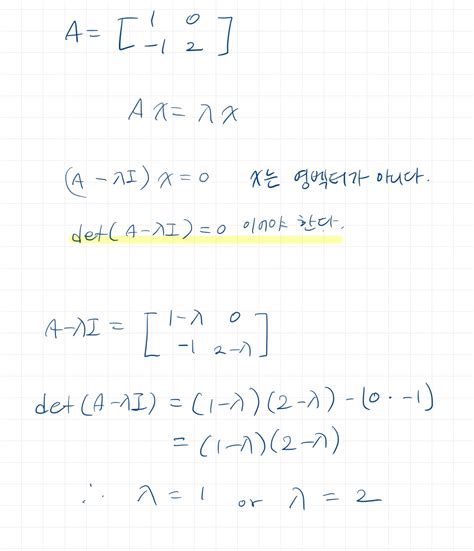 A = [ 1 0
-1 2 ]
A x = λ x
(A - λI) x = 0 x는 영벡터가 아니다.
det(A-λI) = 0 이어야 한다.
A-λI = [ 1-λ 0
-1 2-λ ]
det(A-λI) = (1-λ)(2-λ) - (0 · -1)
= (1-λ)(2-λ)
∴ λ = 1 or λ = 2